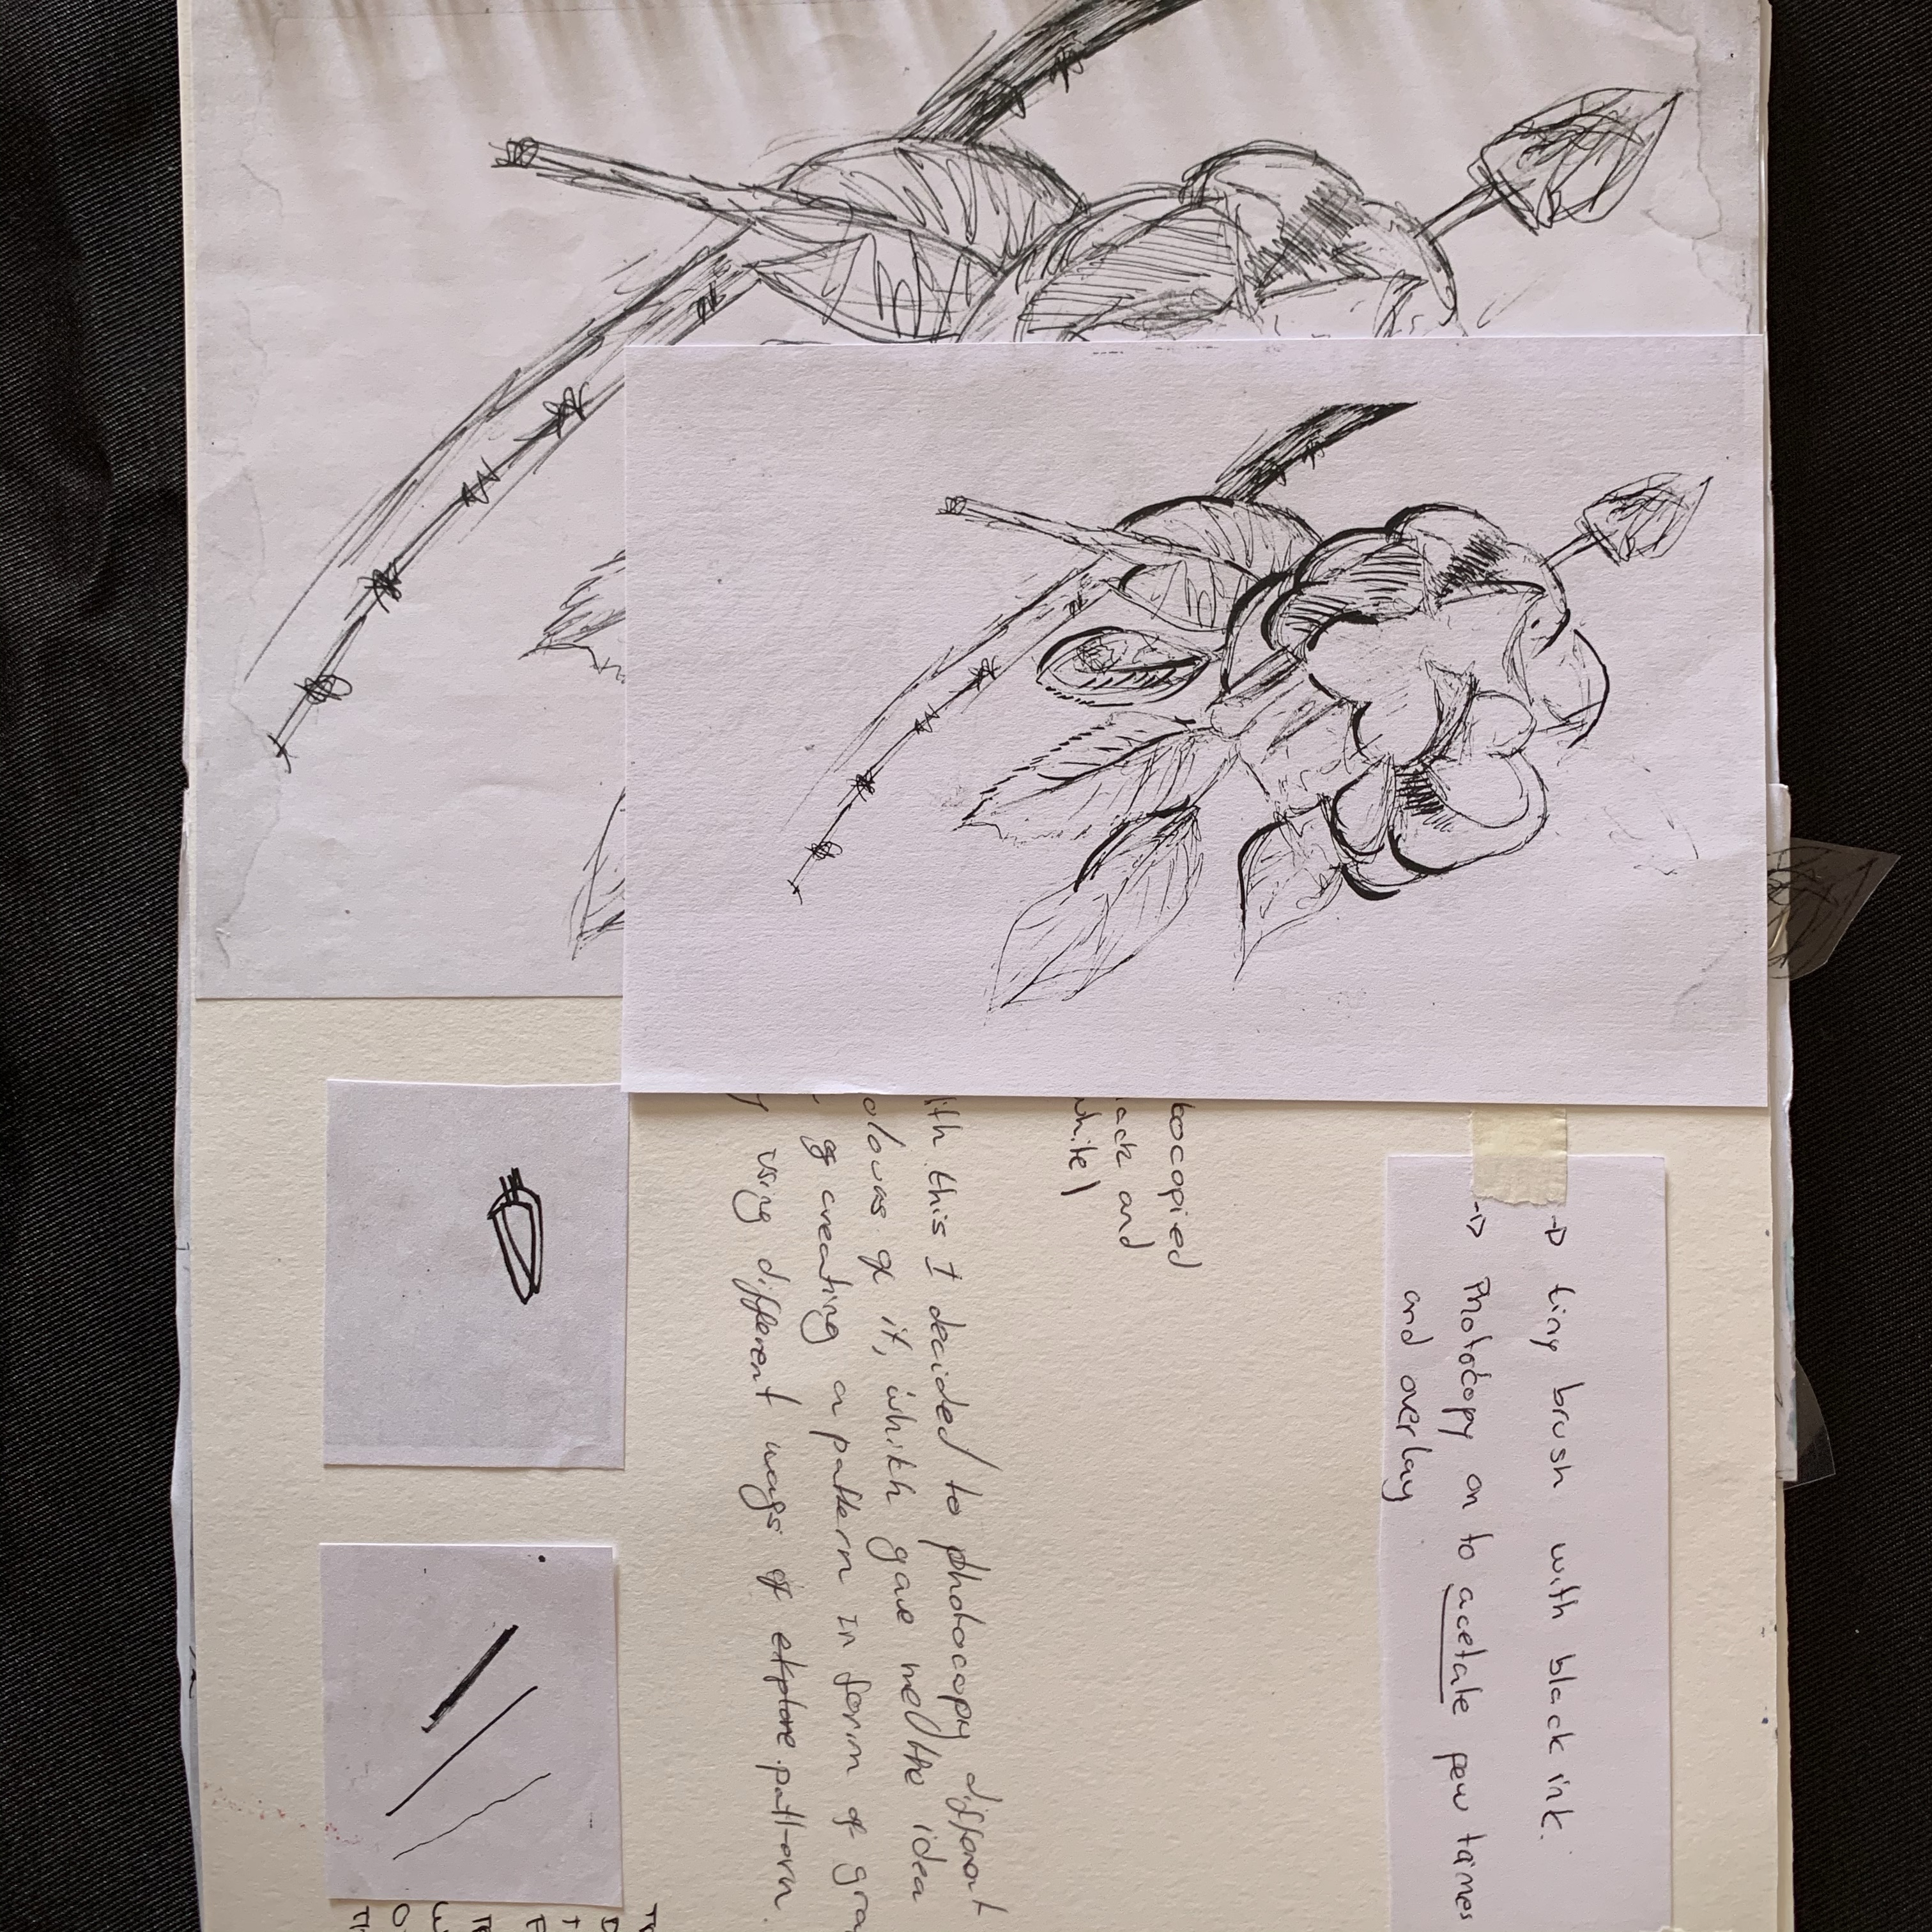 → tiny brush with black ink.
→ Photocopy on to acetate few times
and overlay
bocopied
ack and
white)
ith this I decided to photocopy different
olours of it, which gave me the idea
of creating a pattern in form of gra
y using different ways of explore pattern.